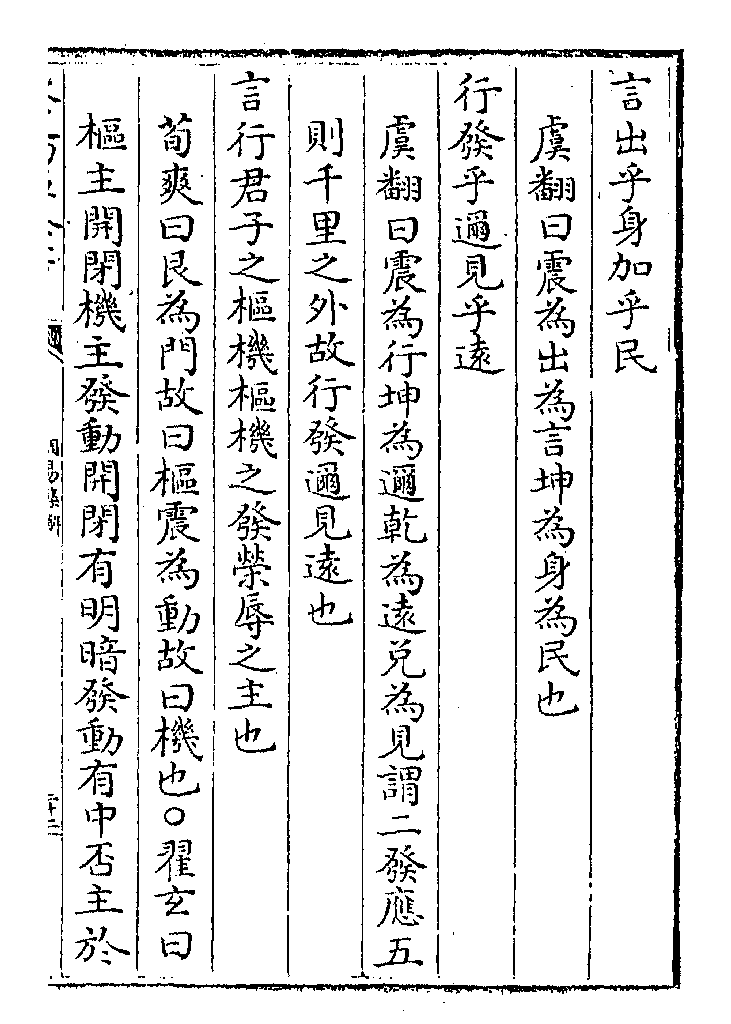 言出乎身加乎民
虞翻曰震為出為言坤為身為民也
行發乎邇見乎遠
虞翻曰震為行坤為邇乾為遠兌為見謂二發應五
則千里之外故行發邇見遠也
言行君子之樞機樞機之發榮辱之主也
荀爽曰艮為門故曰樞震為動故曰機也○翟玄曰
樞主開閉機主發動開閉有明暗發動有中否主於